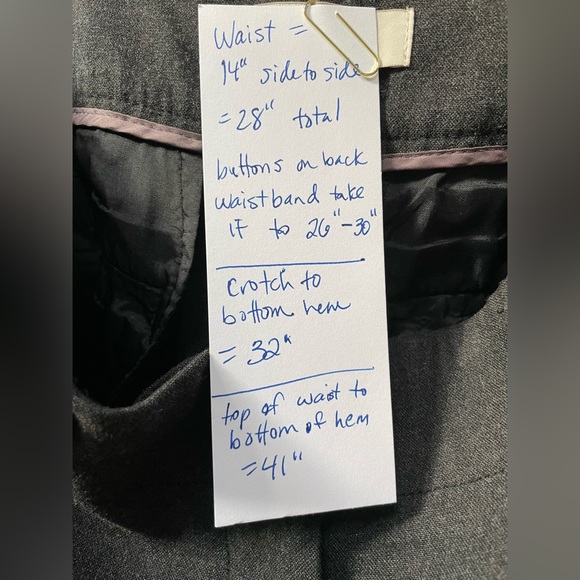 Waist =
14" side to side
= 28" total
buttons on back
waistband take
it to 26"-30"
crotch to
bottom hem
= 32"
top of waist to
bottom of hem
= 41"